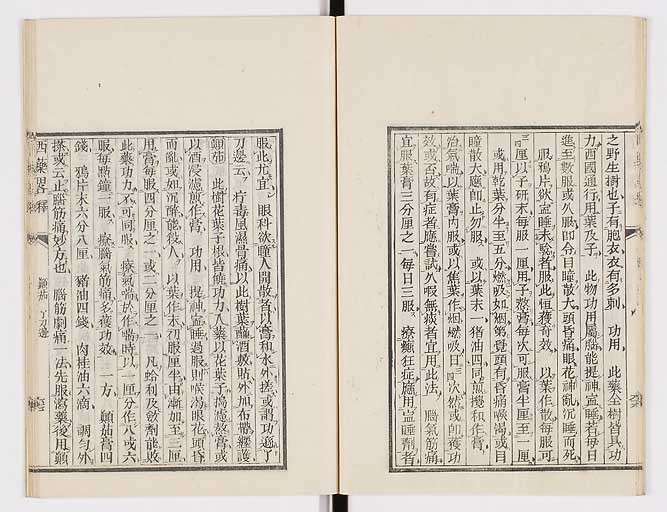 之野生樹也子有胞衣衣有多刺 功用 此藥全樹皆具功
力西國通行用葉及子 此物功用屬腦能提神寍睡若每日
進至數服或久服即令目瞳散大頭昏痛眼花神亂沉睡而死
服鴉片欲寍睡未驗者服此恒獲奇效 以葉作散每服可
三厘以子研末每服一厘用子熬膏每次可服膏半厘至一厘
或用乾葉分半至五分燃吸如烟第覺頭有昏痛喉渴或目
瞳散大應即止勿服 或以葉末一猪油四同煎攪和作膏
治氣喘以葉膏内服或以焦葉作烟燃吸日三四次然或即獲功
效或否故有症者應嘗試久嘏無救者宜用此法 腦氣筋痛
宜服葉膏三分厘之一每日三服 療癲狂症應用寍睡劑者
服此尤宜 眼科欲瞳人開散者以膏和水外搽或謂功遜丁
刀邊云 疗毒風濕骨痛以此樹葉蘸酒熱貼外加布帶纏護
顛茄 此樹花葉子根皆饒功力入藥以花葉子搗濾熬膏或
以酒浸濾煎作膏 功用 提神寍睡過服則喉渴眼花頭昏
而亂或如沉醉能殺人 以葉作末初服厘半由漸加至三厘
用膏每服四分厘之一或三分厘之一 凡蛤利及斂劑能敗
此藥功力不可同服 療氣喘於作喘時以一厘分作八或六
服每點鐘一服 療腦氣筋痛多獲功效 一方 顛茄膏四
錢 鴉片末六分八厘 豬油四錢 肉桂油六滴 調勻外
搽或云止腦筋痛妙方也 腦筋劇痛一法先服瀉藥後用顛
西藥畧釋 顛茄 丁刀邊